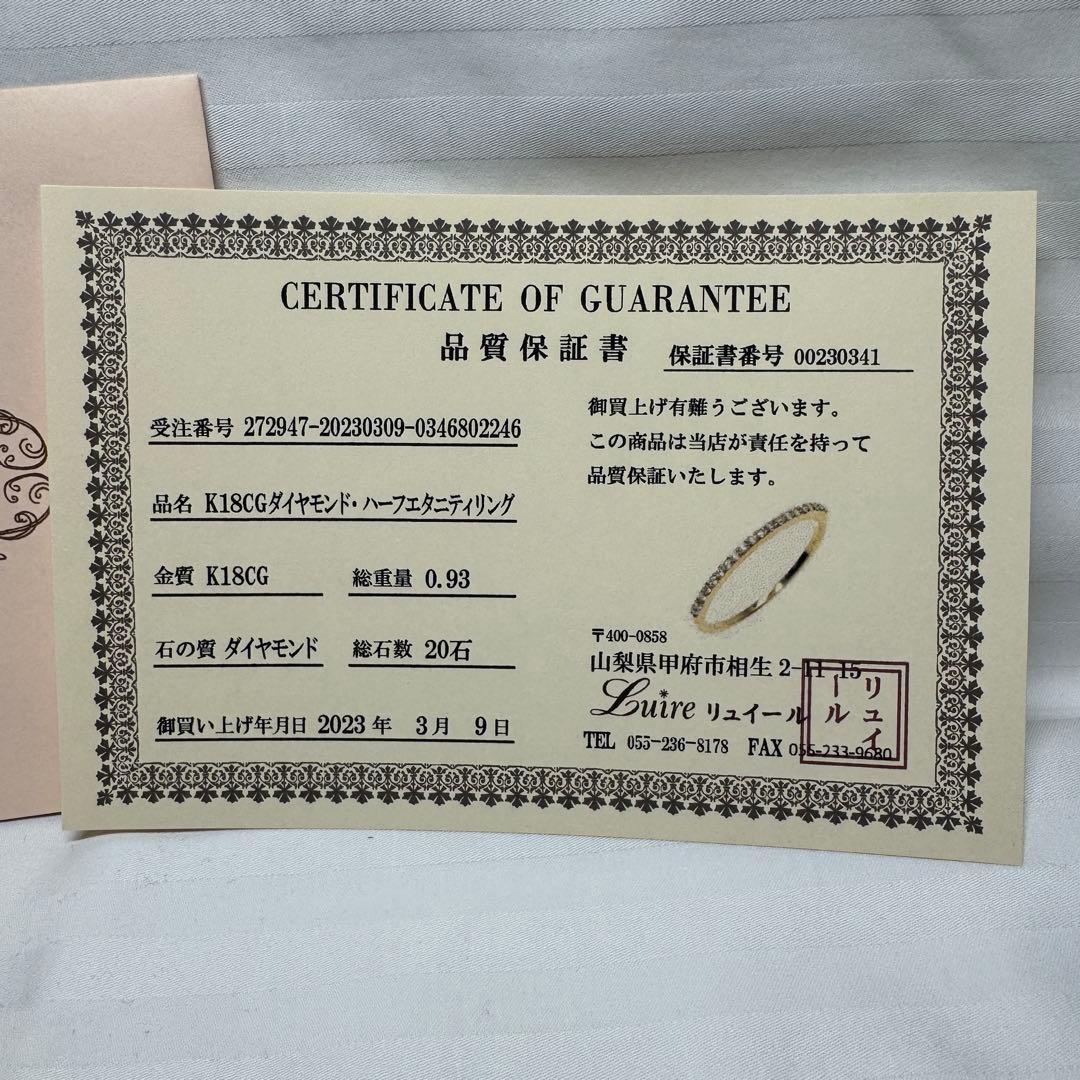 CERTIFICATE OF GUARANTEE
品質保証書
保証書番号 00230341
受注番号 272947-20230309-0346802246
品名 K18CGダイヤモンド・ハーフエタニティリング
金質 K18CG 総重量 0.93
石の質 ダイヤモンド 総石数 20石
御買い上げ年月日 2023年 3月 9日
御買上げ有難うございます。
この商品は当店が責任を持って
品質保証いたします。
〒400-0858
山梨県甲府市相生2-11-15
Luire リュイール
TEL 055-236-8178 FAX 055-233-9680
リュイ
ール